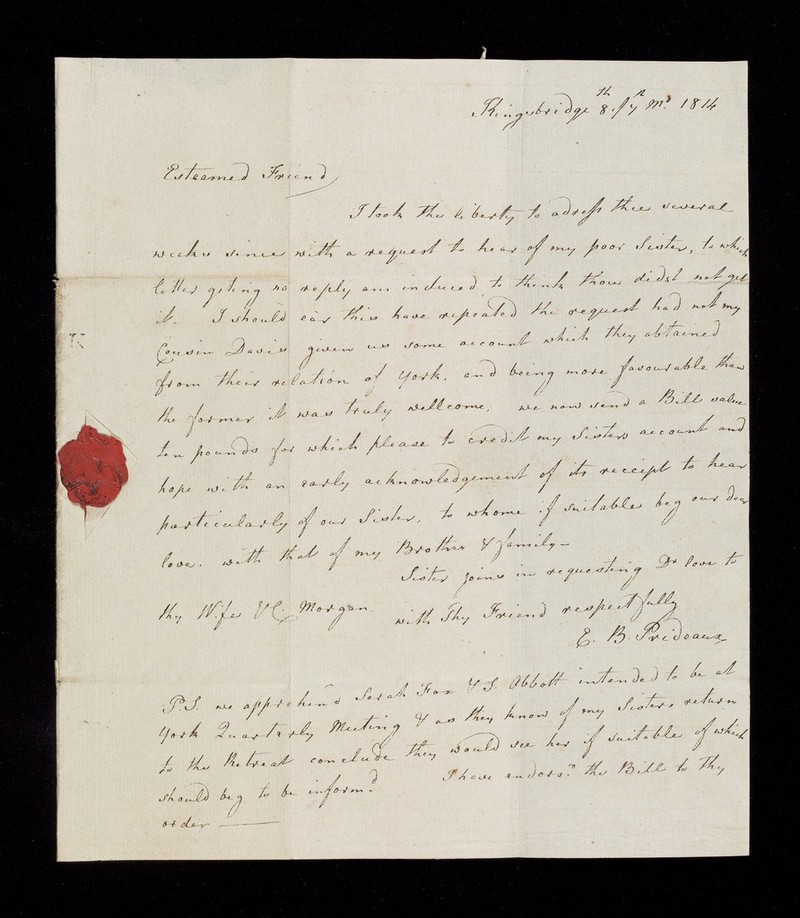 Kingsbridge 8th of 7th Mo. 1814
Esteamed Friend
I took the liberty to adress thee several
weeks since with a request to hear of my poor Sister, to which
letter geting no reply am induced to think thou didst not get
it. I should ear this have repeated the request had not my
Cousin Davis given us some account which they obtained
from their relation of York, and being more favourable than
the former it was truly wellcome, we now send a Bill value
ten pounds for which please to credit my Sisters account and
hope with an early acknowledgement of its receipt to hear
particularly of our Sister, to whome if suitable beg our dear
love. with that of my Brother & family—
Sister joins in requesting Dr love to
thy Wife & C. Morgan with Thy Friend respectfully
E. B. Prideaux
P.S. we apprehend Sarah Fox & S. Abbott intended to be at
York Quarterly Meeting & as they know of my Sisters return
to the Retreat conclude they would see her if suitable of which
should beg to be inform'd I have endors'd the Bill to thy
order —